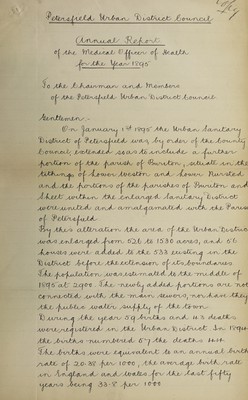 Petersfield Urban District Council
Annual Report
of the Medical Officer of Health
for the Year 1895
To the Chairman and Members
of the Petersfield Urban District Council
Gentlemen:-
On January 1st 1895 the Urban Sanitary
District of Petersfield was, by order of the County
Council extended so as to include a further
portion of the parish of Buriton, situate in the
tithings of Lower Weston and Lower Nursted
and the portions of the parishes of Buriton and
Sheet within the enlarged Sanitary District
were united and amalgamated with the Parish
of Petersfield.
By this alteration the area of the Urban District
was enlarged from 526 to 1530 acres, and 56
houses were added to the 533 existing in the
District before the extension of its boundaries.
The population was estimated to the middle of
1895 at 2900. The newly added portions are not
connected with the main sewers, nor have they
the public water supply of the town.
During the year 59 births and 43 deaths
were registered in the Urban District. In 1894
the births numbered 57 the deaths 44.
The births were equivalent to an annual birth
rate of 20.38 per 1000, the average birth rate
in England and Wales for the last fifty
years being 33.8 per 1000.